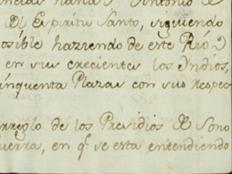 Antonio
Espiritu Santo, siguiendo
posible haziendo de este Rio
en sus crecientes los Indios,
inquenta Plazas con sus respec
arreglo de los Presidios de Sono
uerra, en q.e se està entendiendo